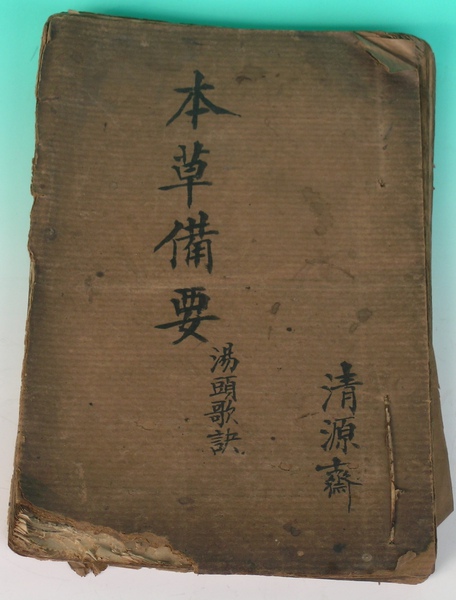 本草備要
湯頭歌訣
清源齋